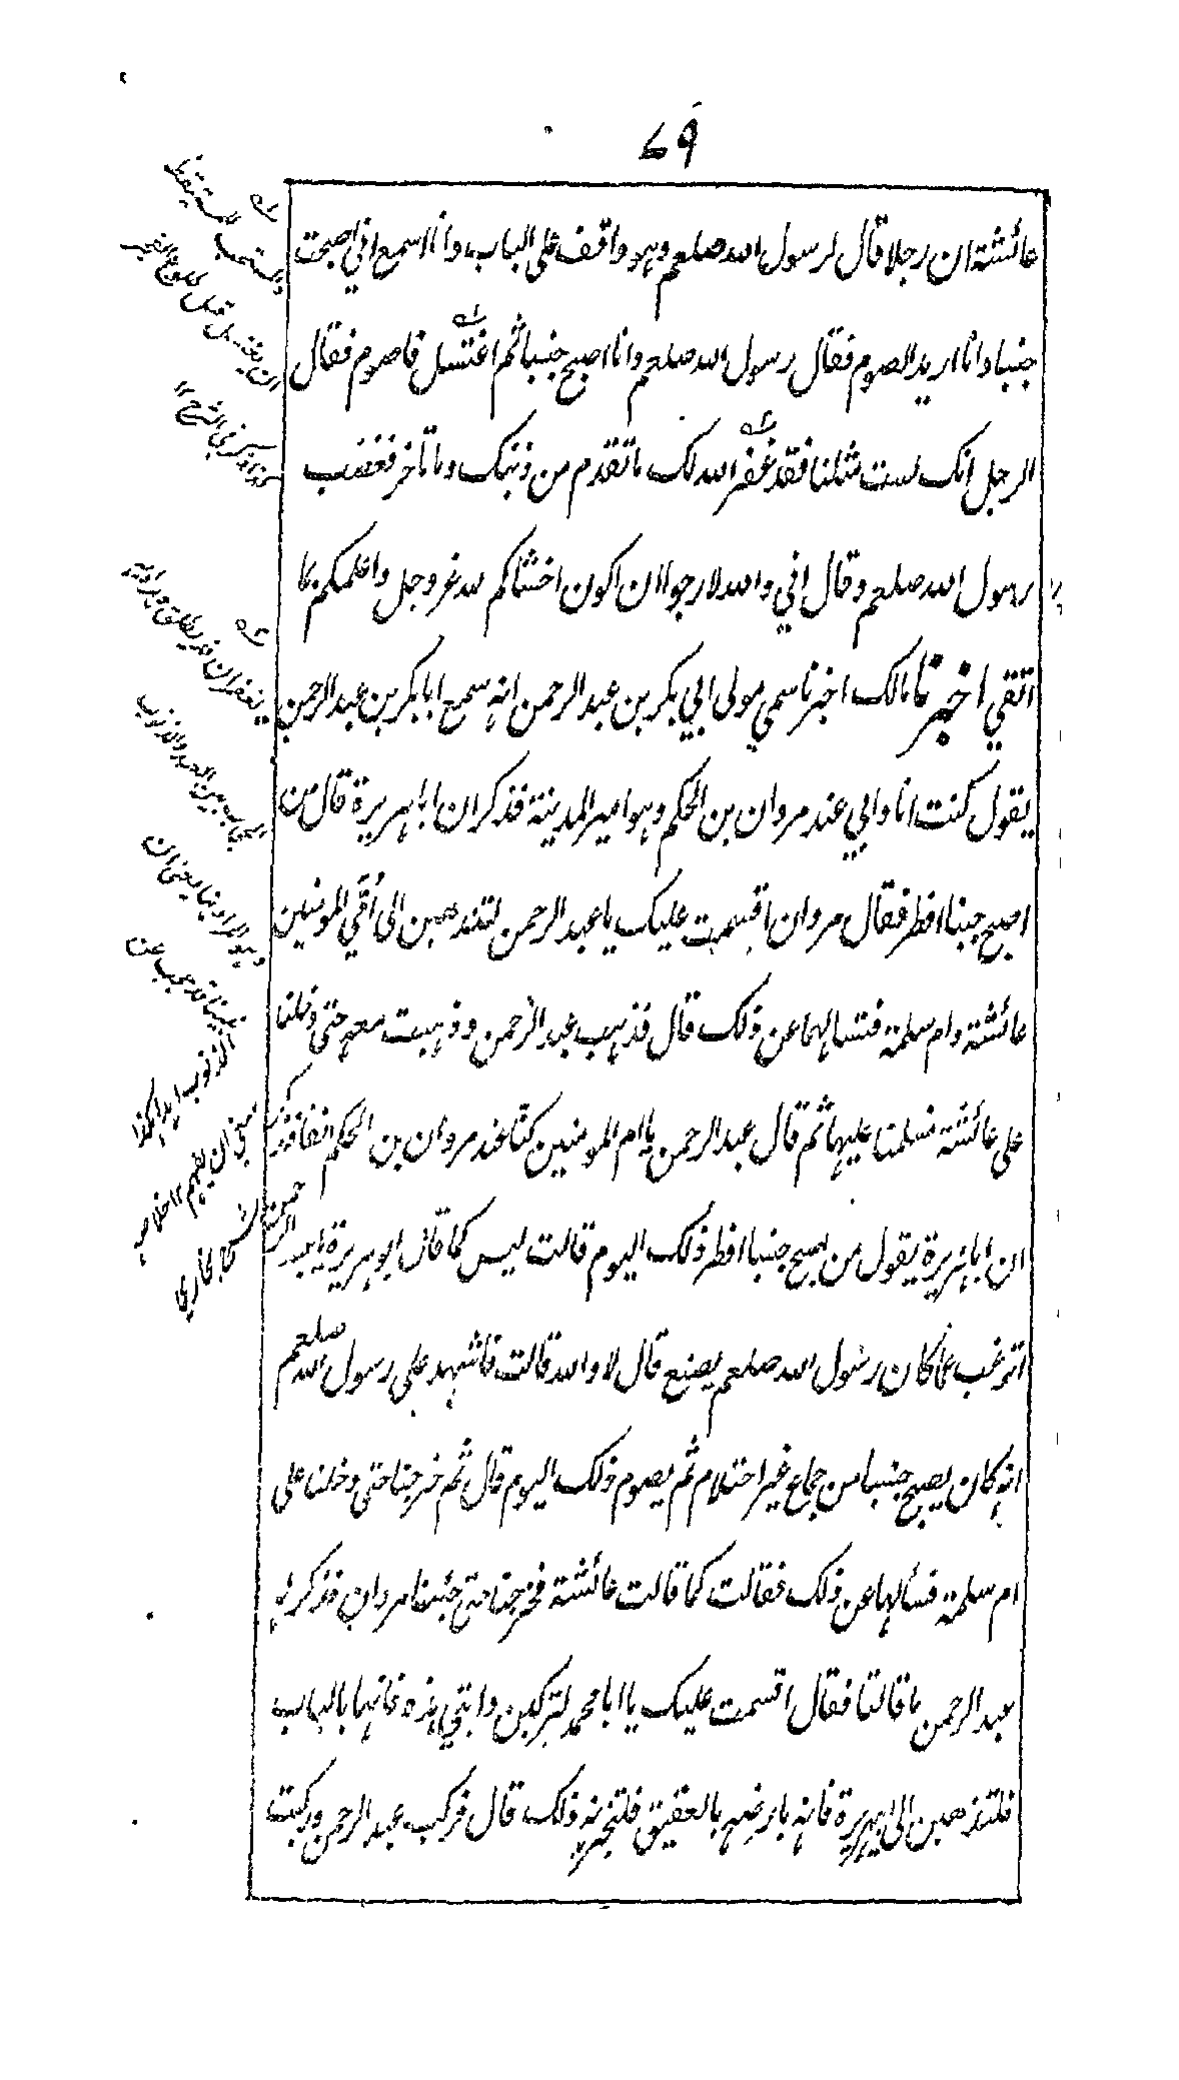 ٦٩
عائشة ان رجلا قال لرسول الله صلعم وهو واقف على الباب وانا اسمع اني اصبحت
جنبا وانا اريد الصوم فقال رسول الله صلعم وانا اصبح جنبا ثم اغتسل فاصوم فقال
الرجل انك لست مثلنا فقد غفر الله لك ما تقدم من ذنبك وما تأخر فغضب
رسول الله صلعم وقال اني والله لارجوا ان اكون اخشاكم لله عز وجل واعلمكم بما
اتقي اخبرنا مالك اخبرنا سمي مولى ابي بكر بن عبد الرحمن انه سمع ابا بكر بن عبد الرحمن
يقول كنت انا وابي عند مروان بن الحكم وهو امير المدينة فذكر ان ابا هريرة قال من
اصبح جنبا افطر فقال مروان اقسمت عليك يا عبد الرحمن لتذهبن الى اُمَّي المومنين
عائشة وام سلمة فتسالهما عن ذلك قال فذهب عبد الرحمن وذهبت معه حتى دخلنا
على عائشة فسلمنا عليها ثم قال عبد الرحمن يا ام المومنين كنا عند مروان بن الحكم انفا فذكر
ان ابا هريرة يقول من يصبح جنبا افطر ذلك اليوم قالت ليس كما قال ابو هريرة يا عبد الرحمن
اترغب عما كان رسول الله صلعم يصنع قال لا والله قالت فاشهد على رسول الله صلعم
انه كان يصبح جنبا من جماع غير احتلام ثم يصوم ذلك اليوم قال ثم خرجنا حتى دخلنا على
ام سلمة فسألها عن ذلك فقالت كما قالت عائشة فخرجنا حتى جئنا مروان فذكر له
عبد الرحمن ما قالتا فقال اقسمت عليك يا ابا محمد لتركبن دابتي هذه فانها بالباب
فلتذهبن الى ابي هريرة فانه بارضه بالعقيق فلتخبرنه ذلك قال فركب عبد الرحمن وركبت